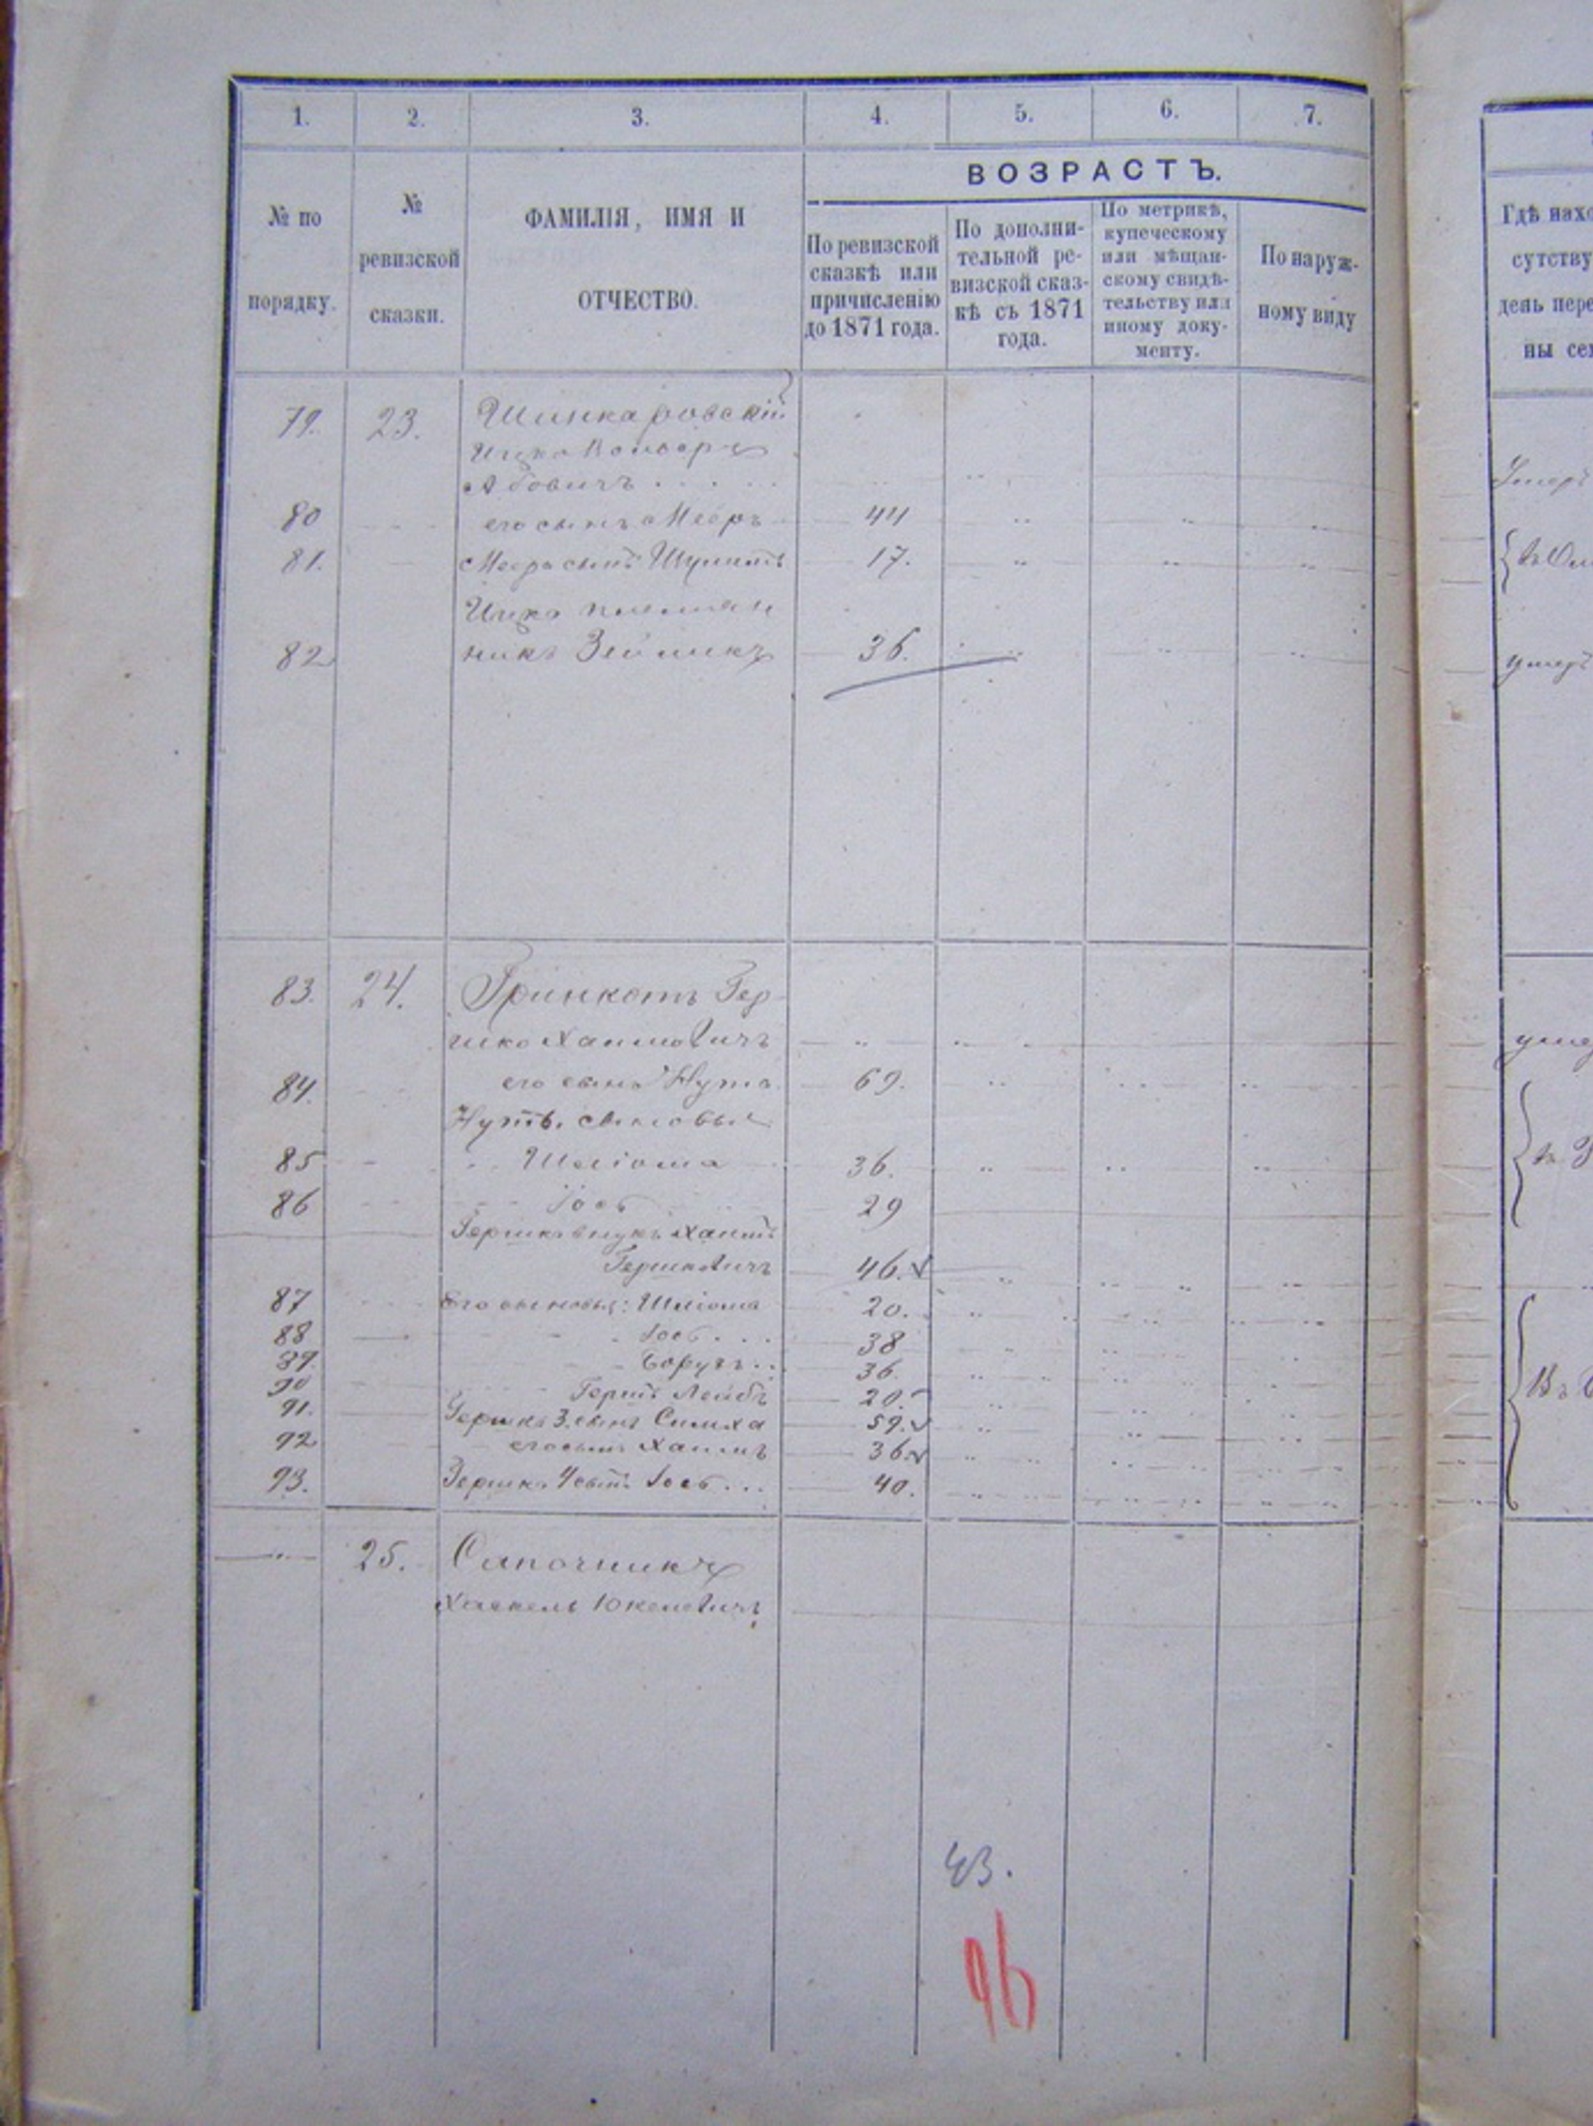 1. 2. 3. 4. 5. 6. 7.
№ по порядку.
№ ревизской сказки.
ФАМИЛІЯ, ИМЯ И ОТЧЕСТВО.
ВОЗРАСТЪ.
По ревизской сказкѣ или причисленію до 1871 года.
По дополнительной ревизской сказкѣ съ 1871 года.
По метрикѣ, купеческому или мѣщанскому свидѣтельству или иному документу.
По наружному виду
79. 23. Шинкаровскій
Ицко
Абовичъ . . . . .
80 его сынъ Мееръ 44
81. Меера сынъ 17.
Ицка племян
82 никъ Зейликъ 36.
83. 24. Гринкотъ Гер
шко Хаимовичъ
84. его сынъ Нута 69.
Нуты сыновья
85 Шліома 36.
86 Іось 29
Гершка внукъ Хаимъ
Гершковичъ 46.
87 Его сыновья: Шліома 20.
88 Іось . . . 38
89. Борухъ . . 36.
90 Гершъ Лейбъ 20.
91. Гершка 3. сынъ Симха 59.
92 его сынъ Хаимъ 36.
93. Гершка 4 сынъ Іось . . . 40.
25. Сапочникъ
Хаскель
43.
96
Гдѣ
умеръ